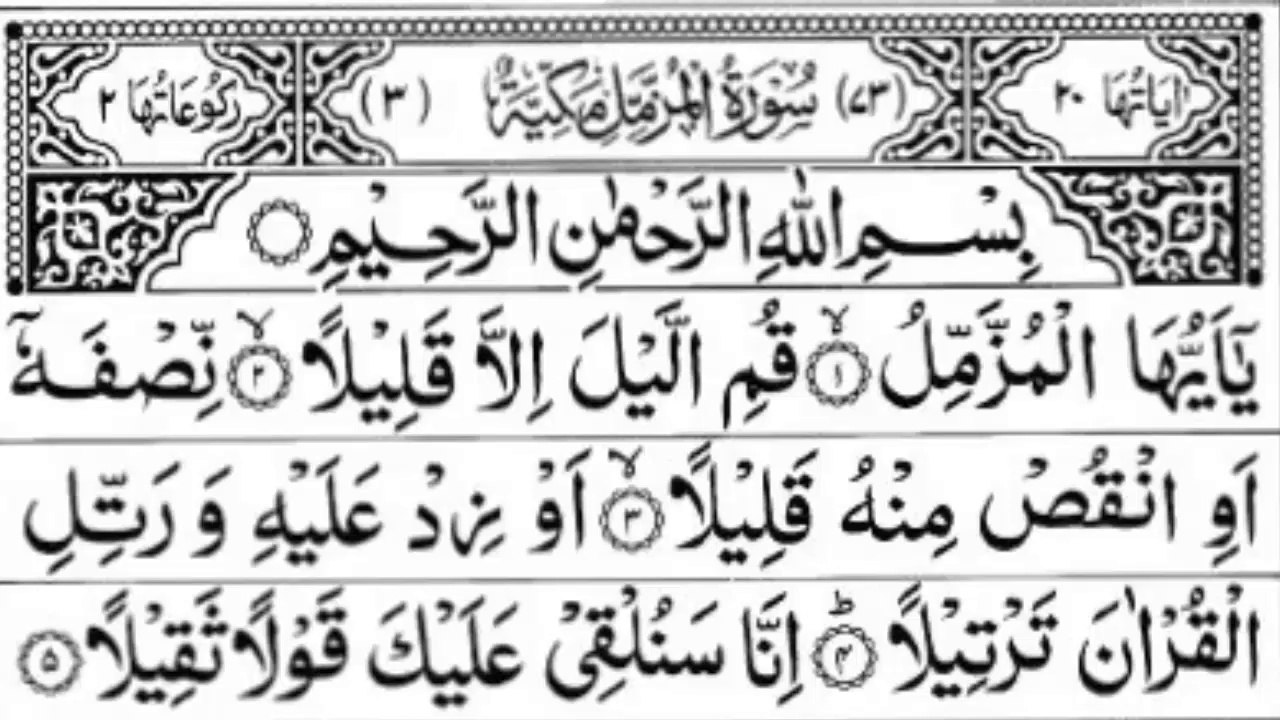 اٰیَاتُهَا ٢٠ (٧٣) سُوْرَةُ الْمُزَّمِّلِ مَكِّيَّةٌ (٣) رُكُوْعَاتُهَا ٢
بِسْمِ اللّٰهِ الرَّحْمٰنِ الرَّحِیْمِ
یٰۤاَیُّهَا الْمُزَّمِّلُ ۙ﴿١﴾ قُمِ الَّیْلَ اِلَّا قَلِیْلًا ۙ﴿٢﴾ نِّصْفَهٗۤ
اَوِ انْقُصْ مِنْهُ قَلِیْلًا ۙ﴿٣﴾ اَوْ زِدْ عَلَیْهِ وَ رَتِّلِ
الْقُرْاٰنَ تَرْتِیْلًا ؕ﴿۴﴾ اِنَّا سَنُلْقِیْ عَلَیْكَ قَوْلًا ثَقِیْلًا ﴿۵﴾